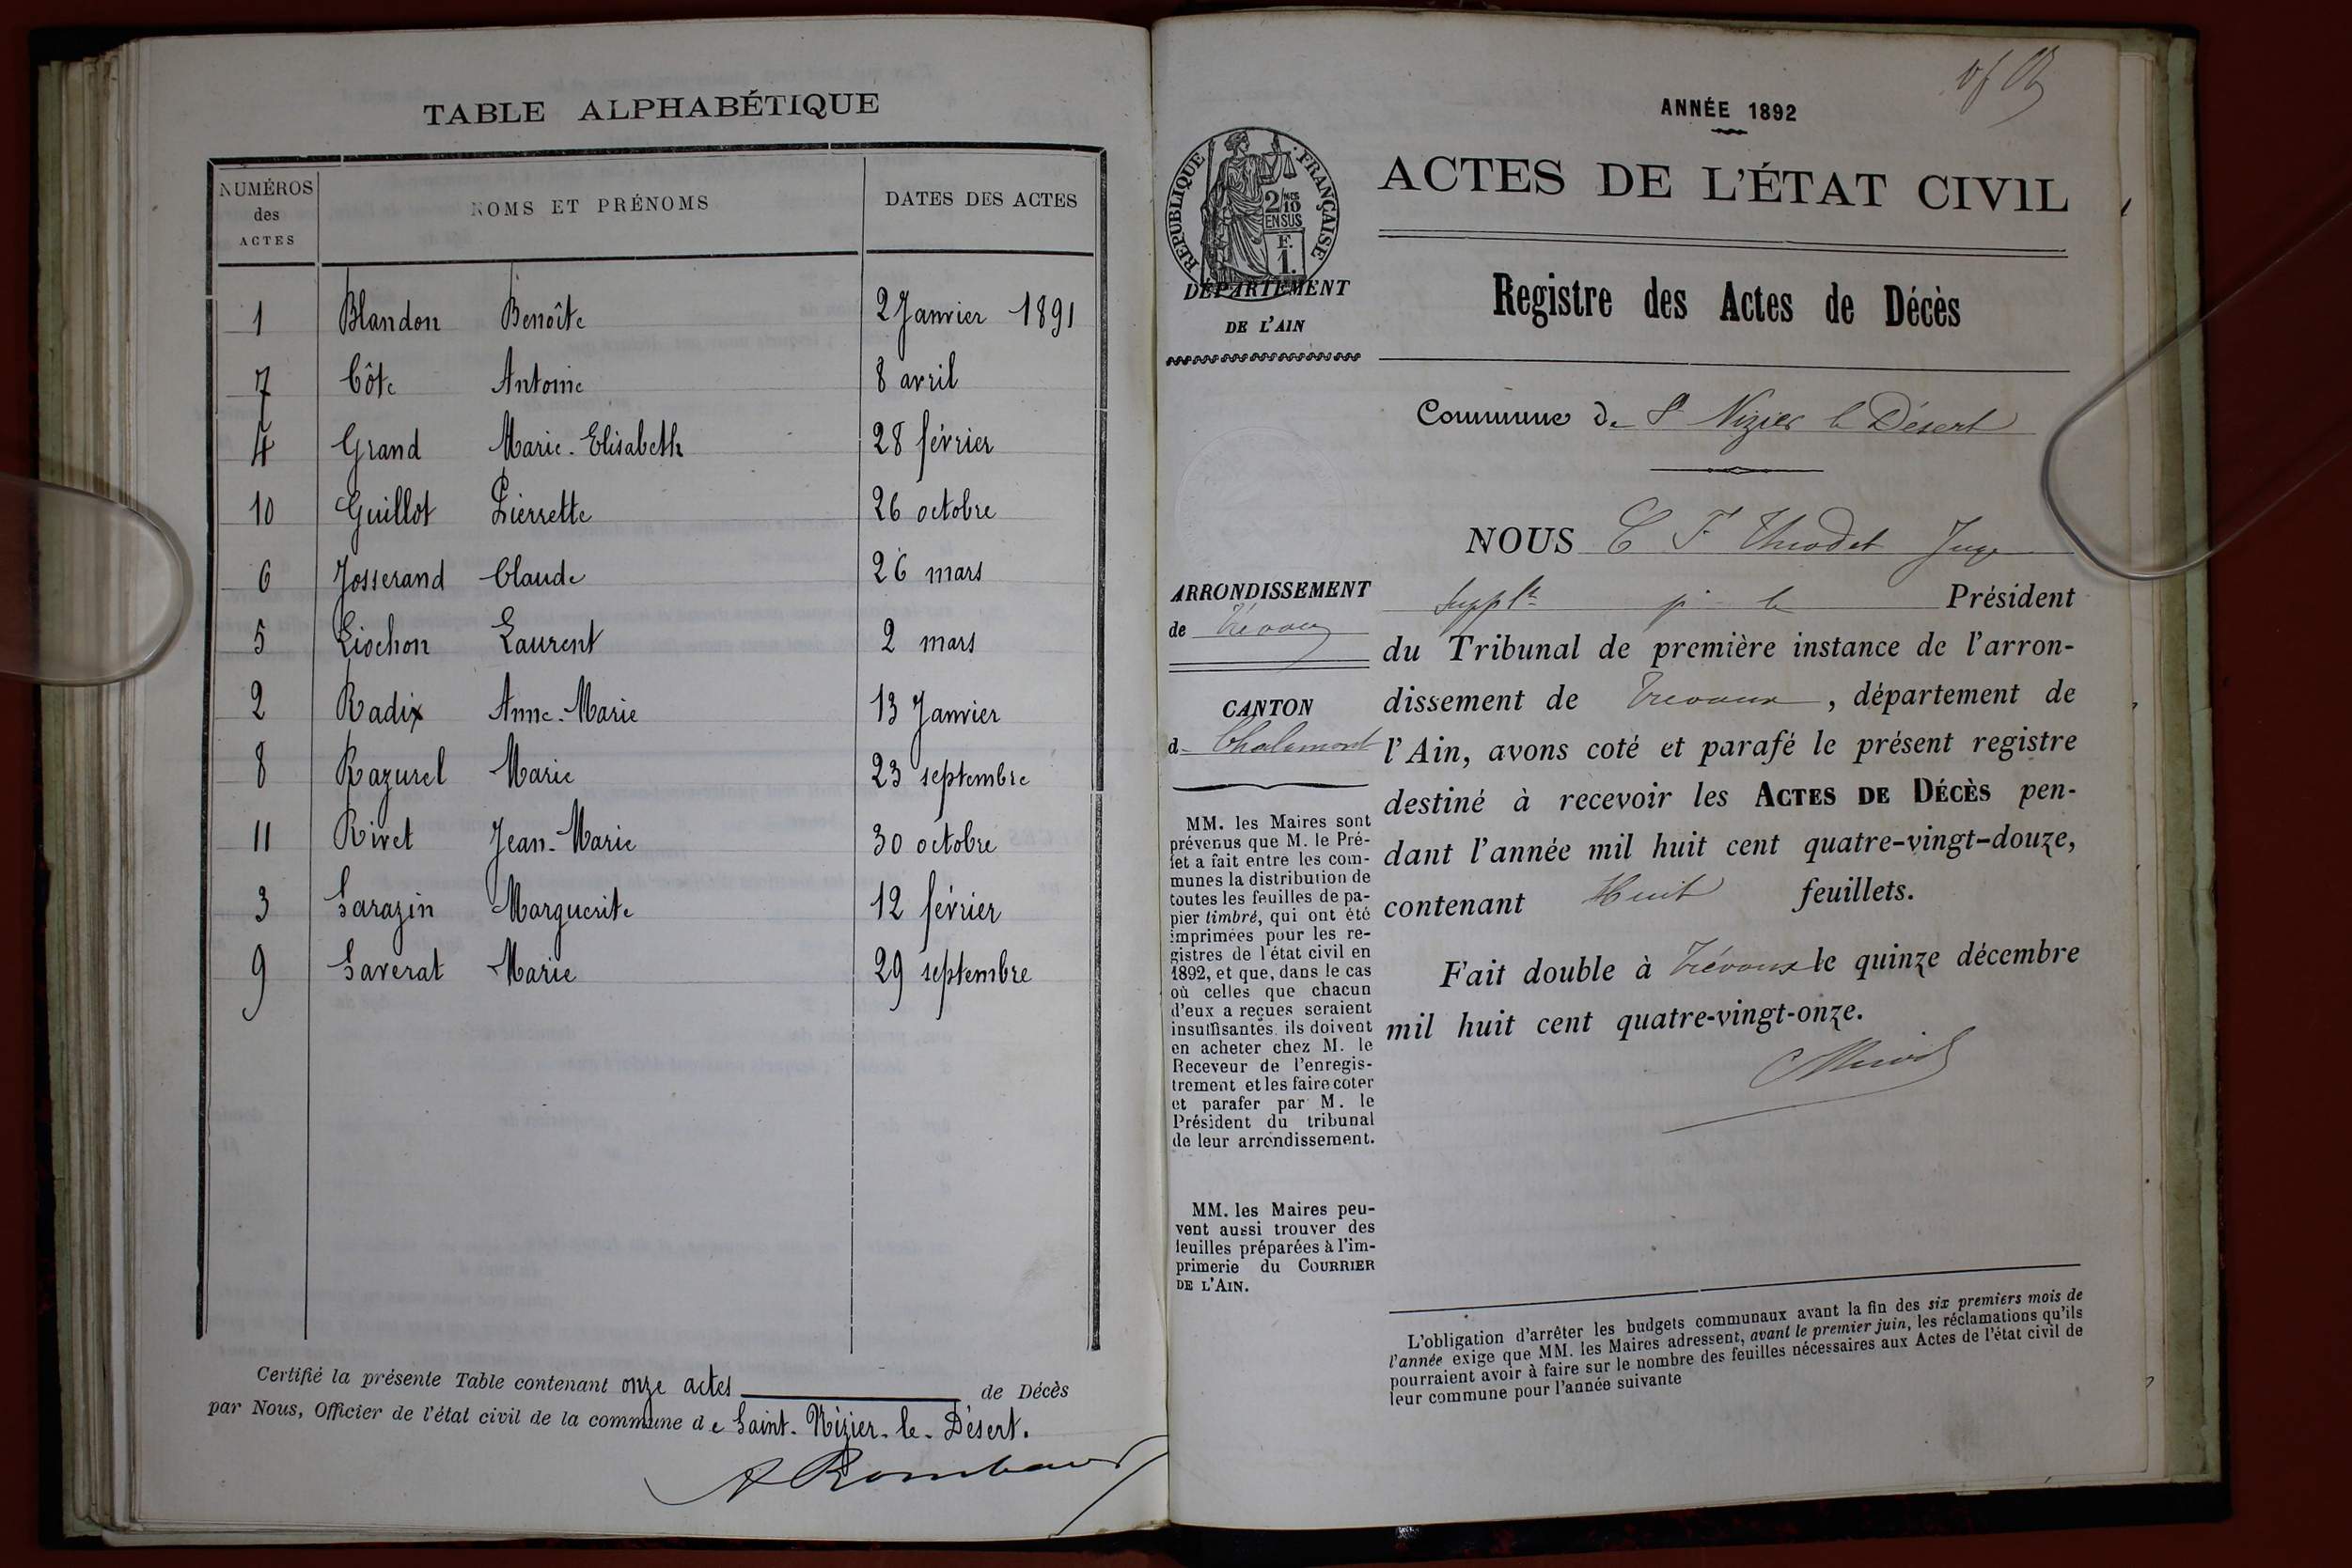 TABLE ALPHABÉTIQUE
NUMÉROS des ACTES NOMS ET PRÉNOMS DATES DES ACTES
1 Blandon Benoîte 2 Janvier 1891
7 Côte Antoine 8 avril
4 Grand Marie-Elisabeth 28 février
10 Guillot Pierrette 26 octobre
6 Josserand Claude 26 mars
5 Liochon Laurent 2 mars
2 Radix Anne-Marie 13 Janvier
8 Razurel Marie 23 septembre
11 Rivet Jean-Marie 30 octobre
3 Sarazin Marguerite 12 février
9 Saverat Marie 29 septembre
Certifié la présente Table contenant onze actes de Décès
par Nous, Officier de l'état civil de la commune de Saint-Nizier-le-Désert.
ANNÉE 1892
RÉPUBLIQUE FRANÇAISE
2/10
EN SUS
F.
1.
DÉPARTEMENT
DE L'AIN
ARRONDISSEMENT
de Trévoux
CANTON
d- Chalamont
MM. les Maires sont
prévenus que M. le Pré-
fet a fait entre les com-
munes la distribution de
toutes les feuilles de pa-
pier timbré, qui ont été
imprimées pour les re-
gistres de l'état civil en
1892, et que, dans le cas
où celles que chacun
d'eux a reçues seraient
insuffisantes, ils doivent
en acheter chez M. le
Receveur de l'enregis-
trement et les faire coter
et parafer par M. le
Président du tribunal
de leur arrondissement.
MM. les Maires peu-
vent aussi trouver des
feuilles préparées à l'im-
primerie du COURRIER
DE L'AIN.
ACTES DE L'ÉTAT CIVIL
Registre des Actes de Décès
Commune de St Nizier le Désert
NOUS C F Juge
Supplt pr le Président
du Tribunal de première instance de l'arron-
dissement de Trévoux, département de
l'Ain, avons coté et parafé le présent registre
destiné à recevoir les ACTES DE DÉCÈS pen-
dant l'année mil huit cent quatre-vingt-douze,
contenant Huit feuillets.
Fait double à Trévoux le quinze décembre
mil huit cent quatre-vingt-onze.
L'obligation d'arrêter les budgets communaux avant la fin des six premiers mois de
l'année exige que MM. les Maires adressent, avant le premier juin, les réclamations qu'ils
pourraient avoir à faire sur le nombre des feuilles nécessaires aux Actes de l'état civil de
leur commune pour l'année suivante